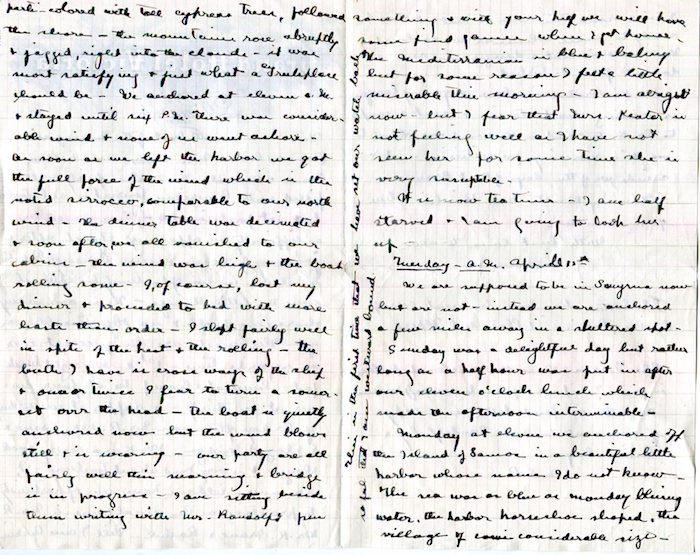 parti-colored with tall cypress trees, followed
the shore - the mountains rose abruptly
& jagged right into the clouds - it was
most satisfying & just what a
should be - We anchored at eleven a.m.
& stayed until six P.M. There was consider-
able wind & none of us went ashore -
As soon as we left the harbor we got
the full force of the wind which is the
noted sirrocco, comparable to our north
wind - The dinner table was decimated
& soon after we all vanished to our
cabins - the wind was high & the boat
rolling some - I, of course, lost my
dinner & proceeded to bed with more
haste than order - I slept fairly well
in spite of the heat & the rolling - the
berth I have is cross ways of the ship
& once or twice I fear to turn a somer-
set over the head - the boat is quietly
anchored now - but the wind blows
still & is wearing - our party are all
fairly well this morning & bridge
is in progress - I am sitting beside
them writing with Mr. Randolph's pen
This is the first time that we have set our watch back
so feel that I am westward bound
something & with your help we will have
some fine games when I get home -
The Mediterranian is blue & balmy
but for some reason I felt a little
miserable this morning - I am alright
now - but I fear that Mrs. Keator is
not feeling well as I have not
seen her for some time she is
very susceptible.
It is now tea time - I am half
starved & I am going to look her
up -
Tuesday - A.M. April 13th
We are supposed to be in Smyrna now
but are not - instead we are anchored
a few miles away in a sheltered spot -
Sunday was a delightful day but rather
long as a half hour was put in after
our eleven o'clock lunch which
made the afternoon interminable -
Monday at eleven we anchored off
the Island of Samos in a beautiful little
harbor whose name I do not know -
The sea was as blue as monday bluing
water, the harbor horseshoe shaped, the
village of some considerable size -